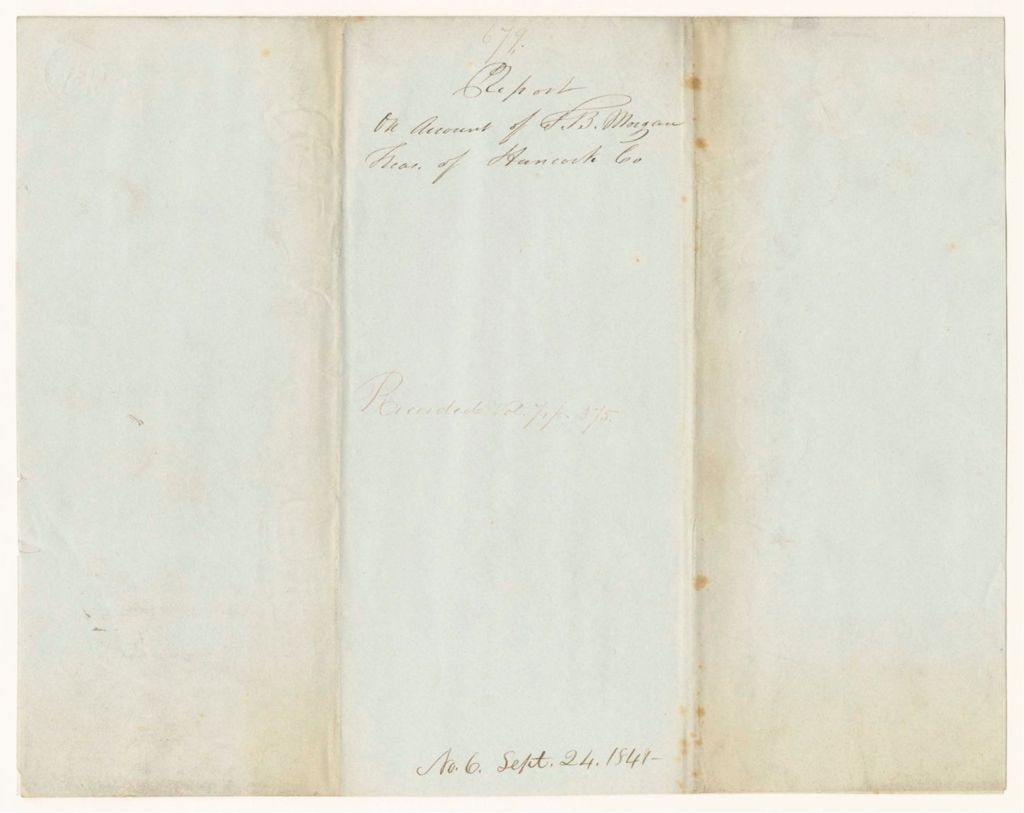 679.
Report
On Account of S. B. Morgan
Treas. of Hancock Co
Recorded Vol. 7, p. 375.
No. 6. Sept. 24. 1841-